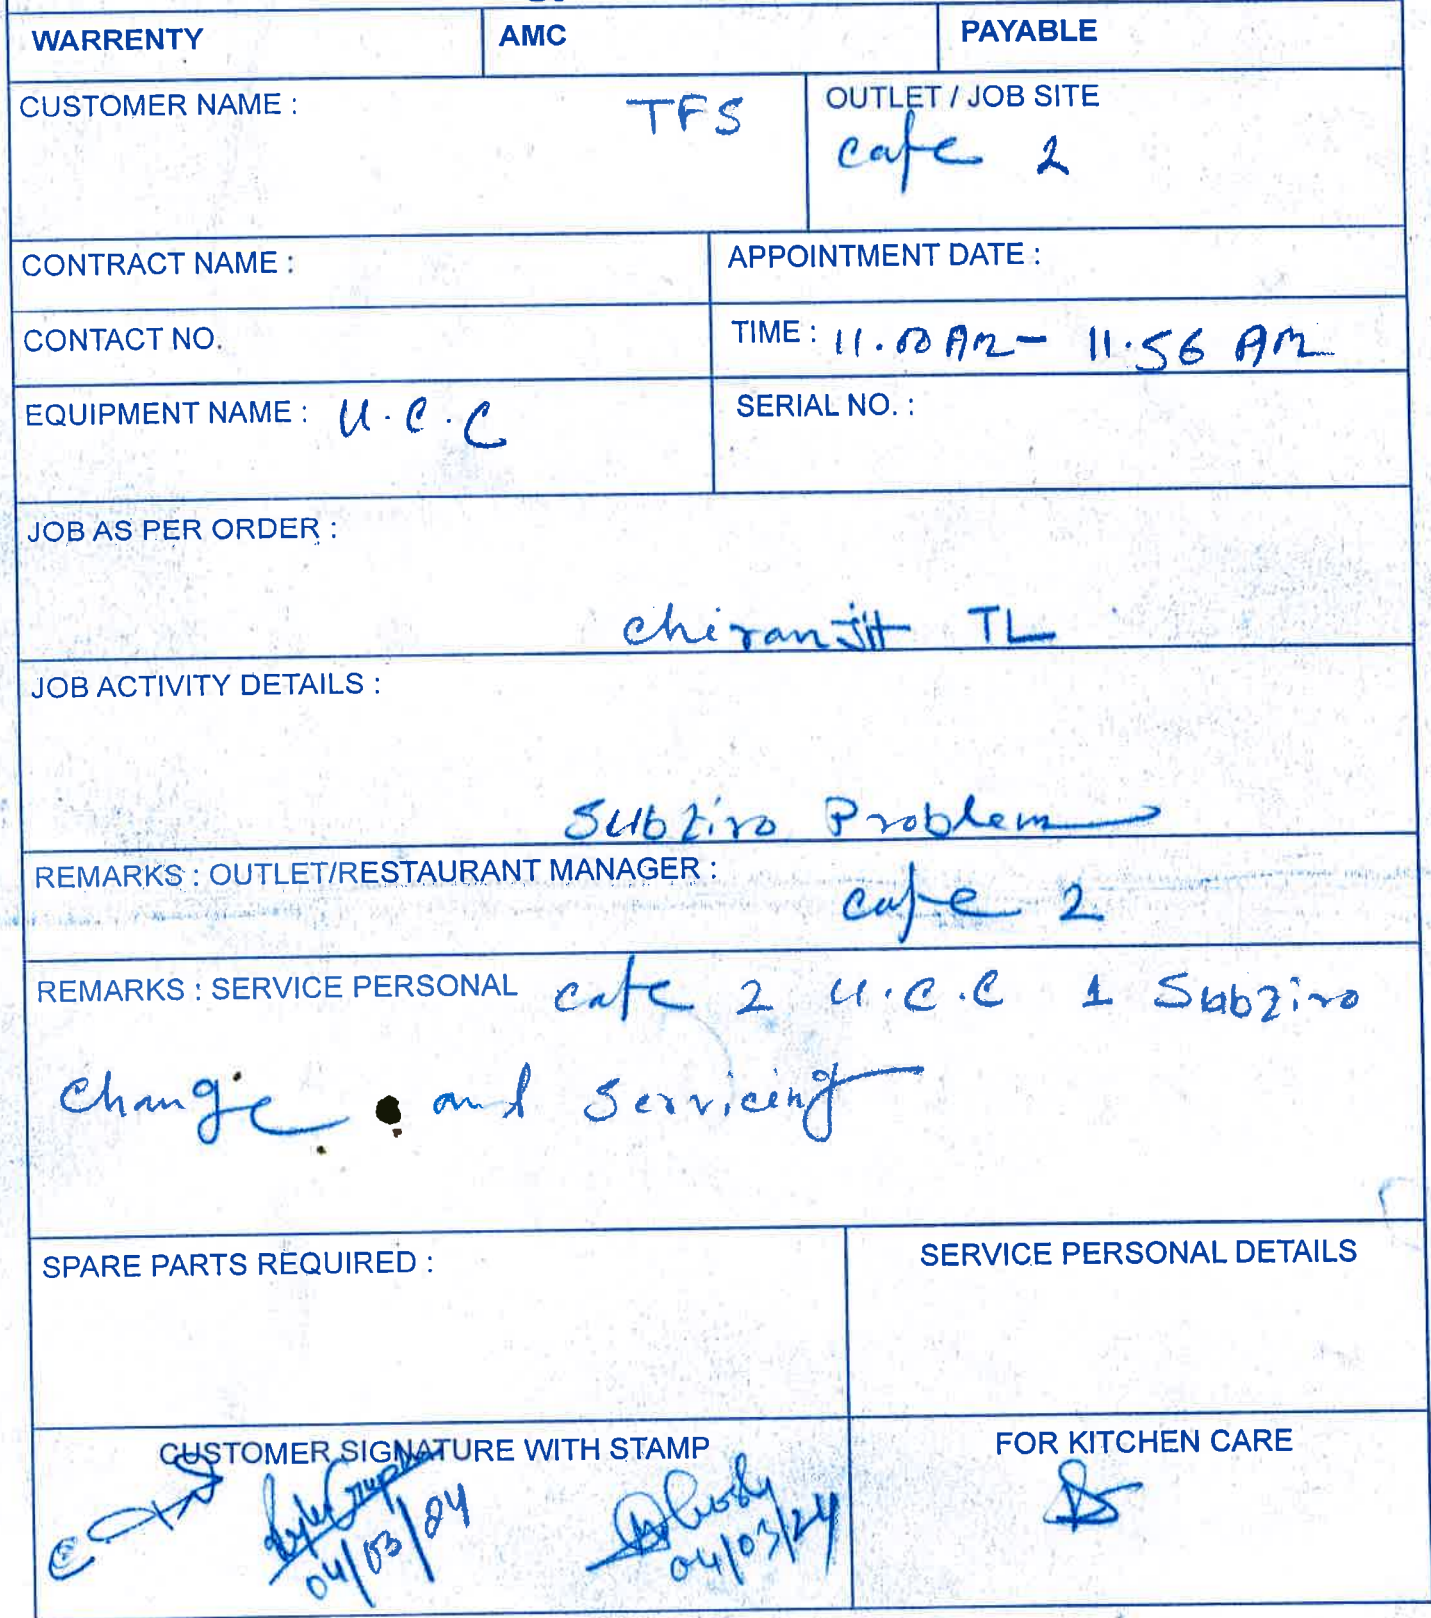 WARRENTY AMC PAYABLE
CUSTOMER NAME : TFS
OUTLET / JOB SITE
cafe 2
CONTRACT NAME :
APPOINTMENT DATE :
CONTACT NO.
TIME : 11.00 AM - 11.56 AM
EQUIPMENT NAME : U.C.C
SERIAL NO. :
JOB AS PER ORDER :
chiranjit TL
JOB ACTIVITY DETAILS :
Subziro Problem
REMARKS : OUTLET/RESTAURANT MANAGER :
cafe 2
REMARKS : SERVICE PERSONAL cafe 2 U.C.C 1 Subziro
change and servicing
SPARE PARTS REQUIRED :
SERVICE PERSONAL DETAILS
CUSTOMER SIGNATURE WITH STAMP
04/03/24
04/03/24
FOR KITCHEN CARE